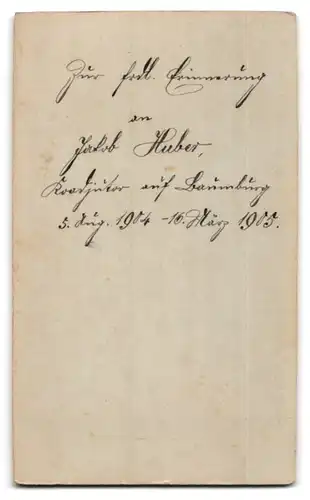 Zur frdl. Erinnerung
an
Jakob Huber,
Koadjutor auf Baumburg
5. Aug. 1904 - 16. März 1905.